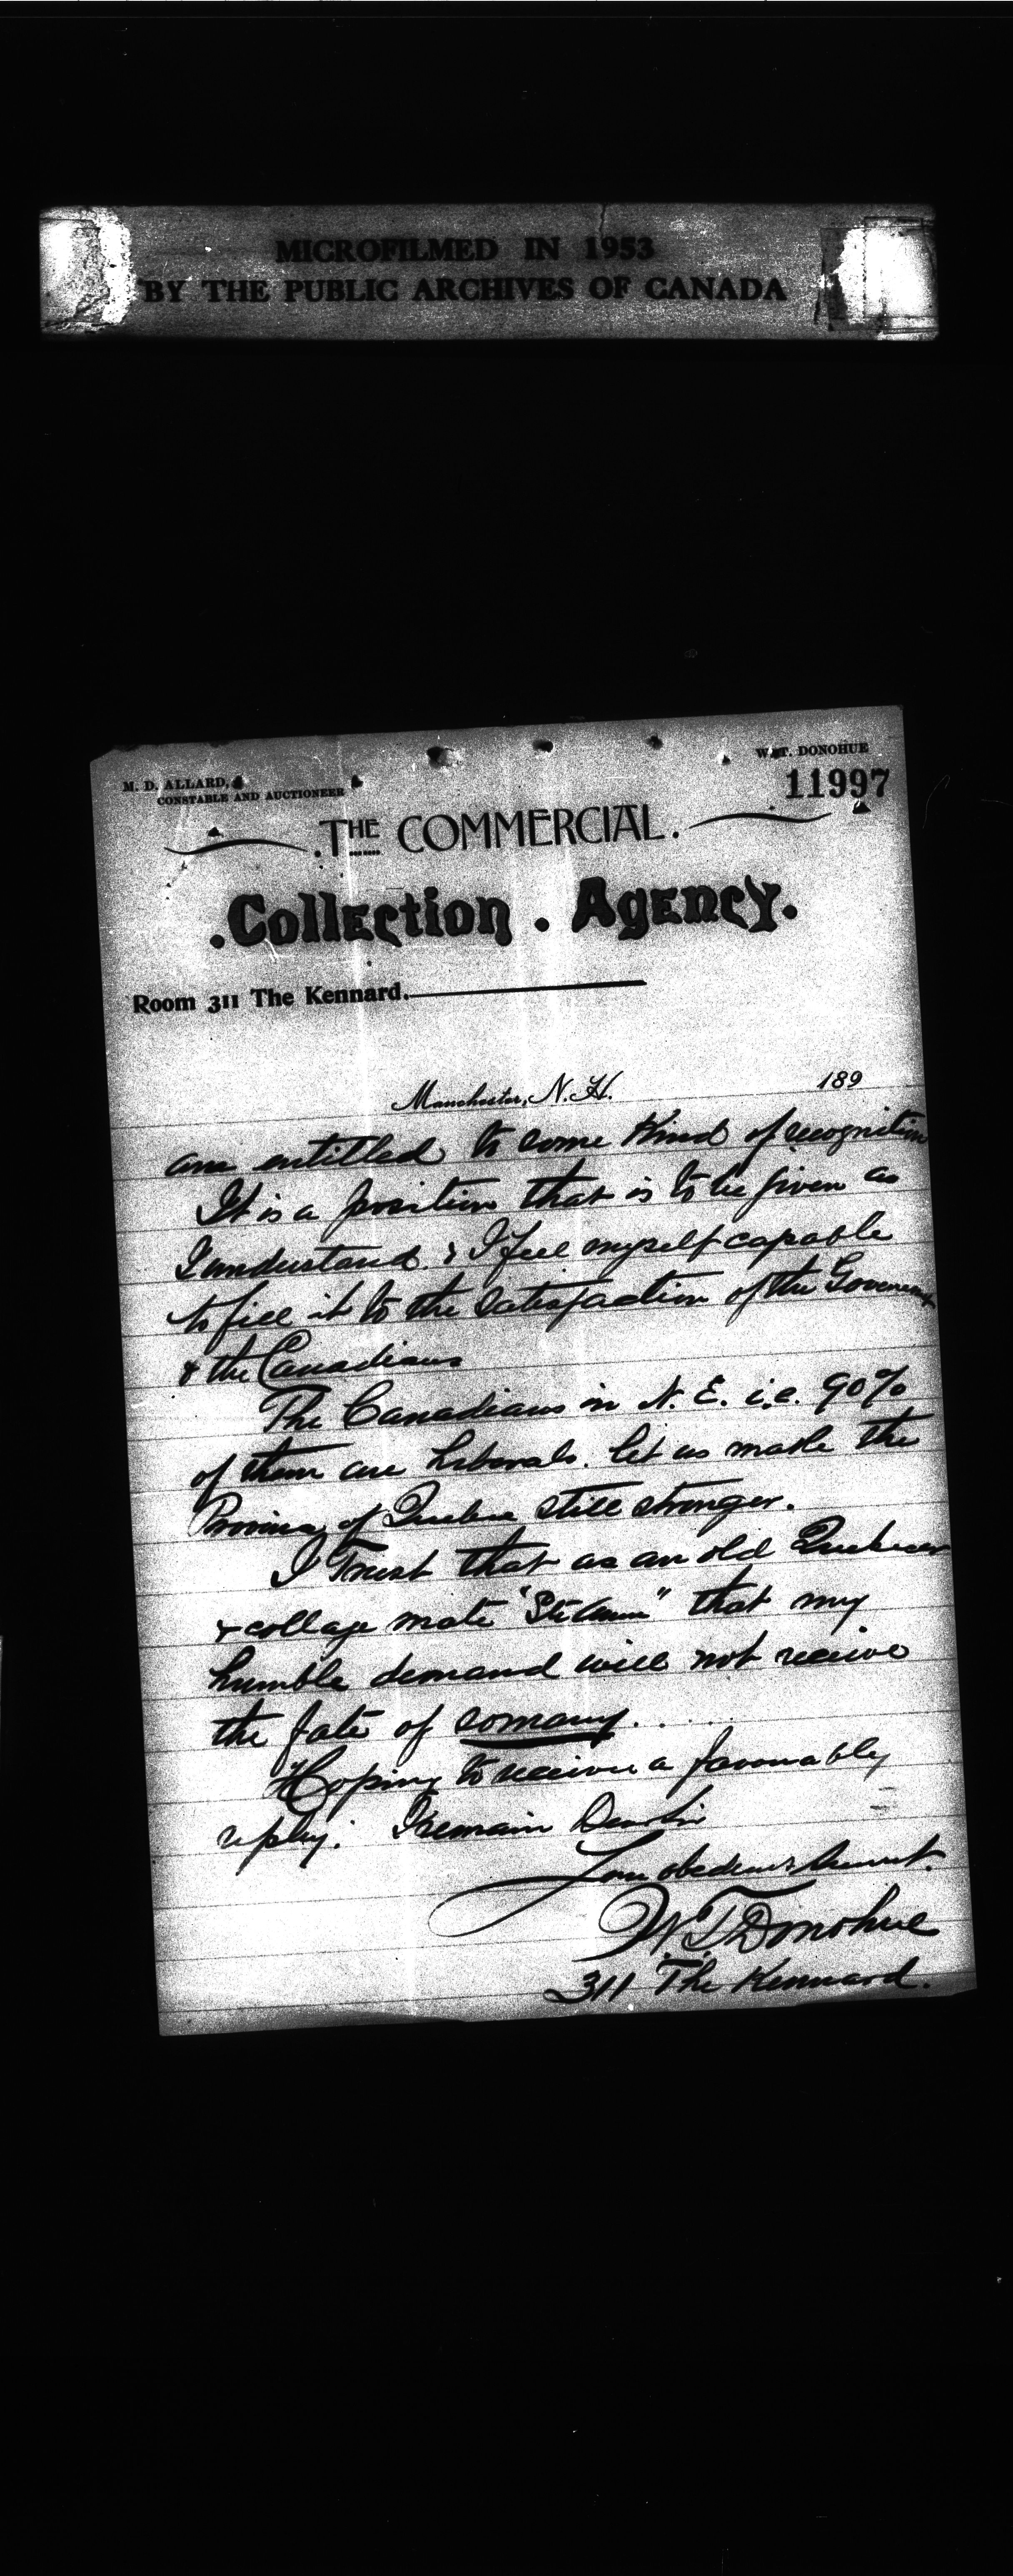 MICROFILMED IN 1953
BY THE PUBLIC ARCHIVES OF CANADA
M. D. ALLARD,
CONSTABLE AND AUCTIONEER
W. T. DONOHUE
11997
.THE COMMERCIAL.
.Collection . Agency.
Room 311 The Kennard.
Manchester, N.H. 189
am entitled to some Kind of recognition
It is a position that is to be given as
I understand. & I feel myself capable
to fill it to the satisfaction of the Government
& the Canadians
The Canadians in N. E. i.e. 90%
of them are Liberals. let us make the
Province of Quebec still stronger.
I Trust that as an old Quebecer
& collage mate "Ste Anne" that my
humble demand will not receive
the fate of somany.....
Hoping to receive a favourably
reply. I remain Dear Sir
Your obedient Servant.
W.T. Donohue
311 The Kennard.